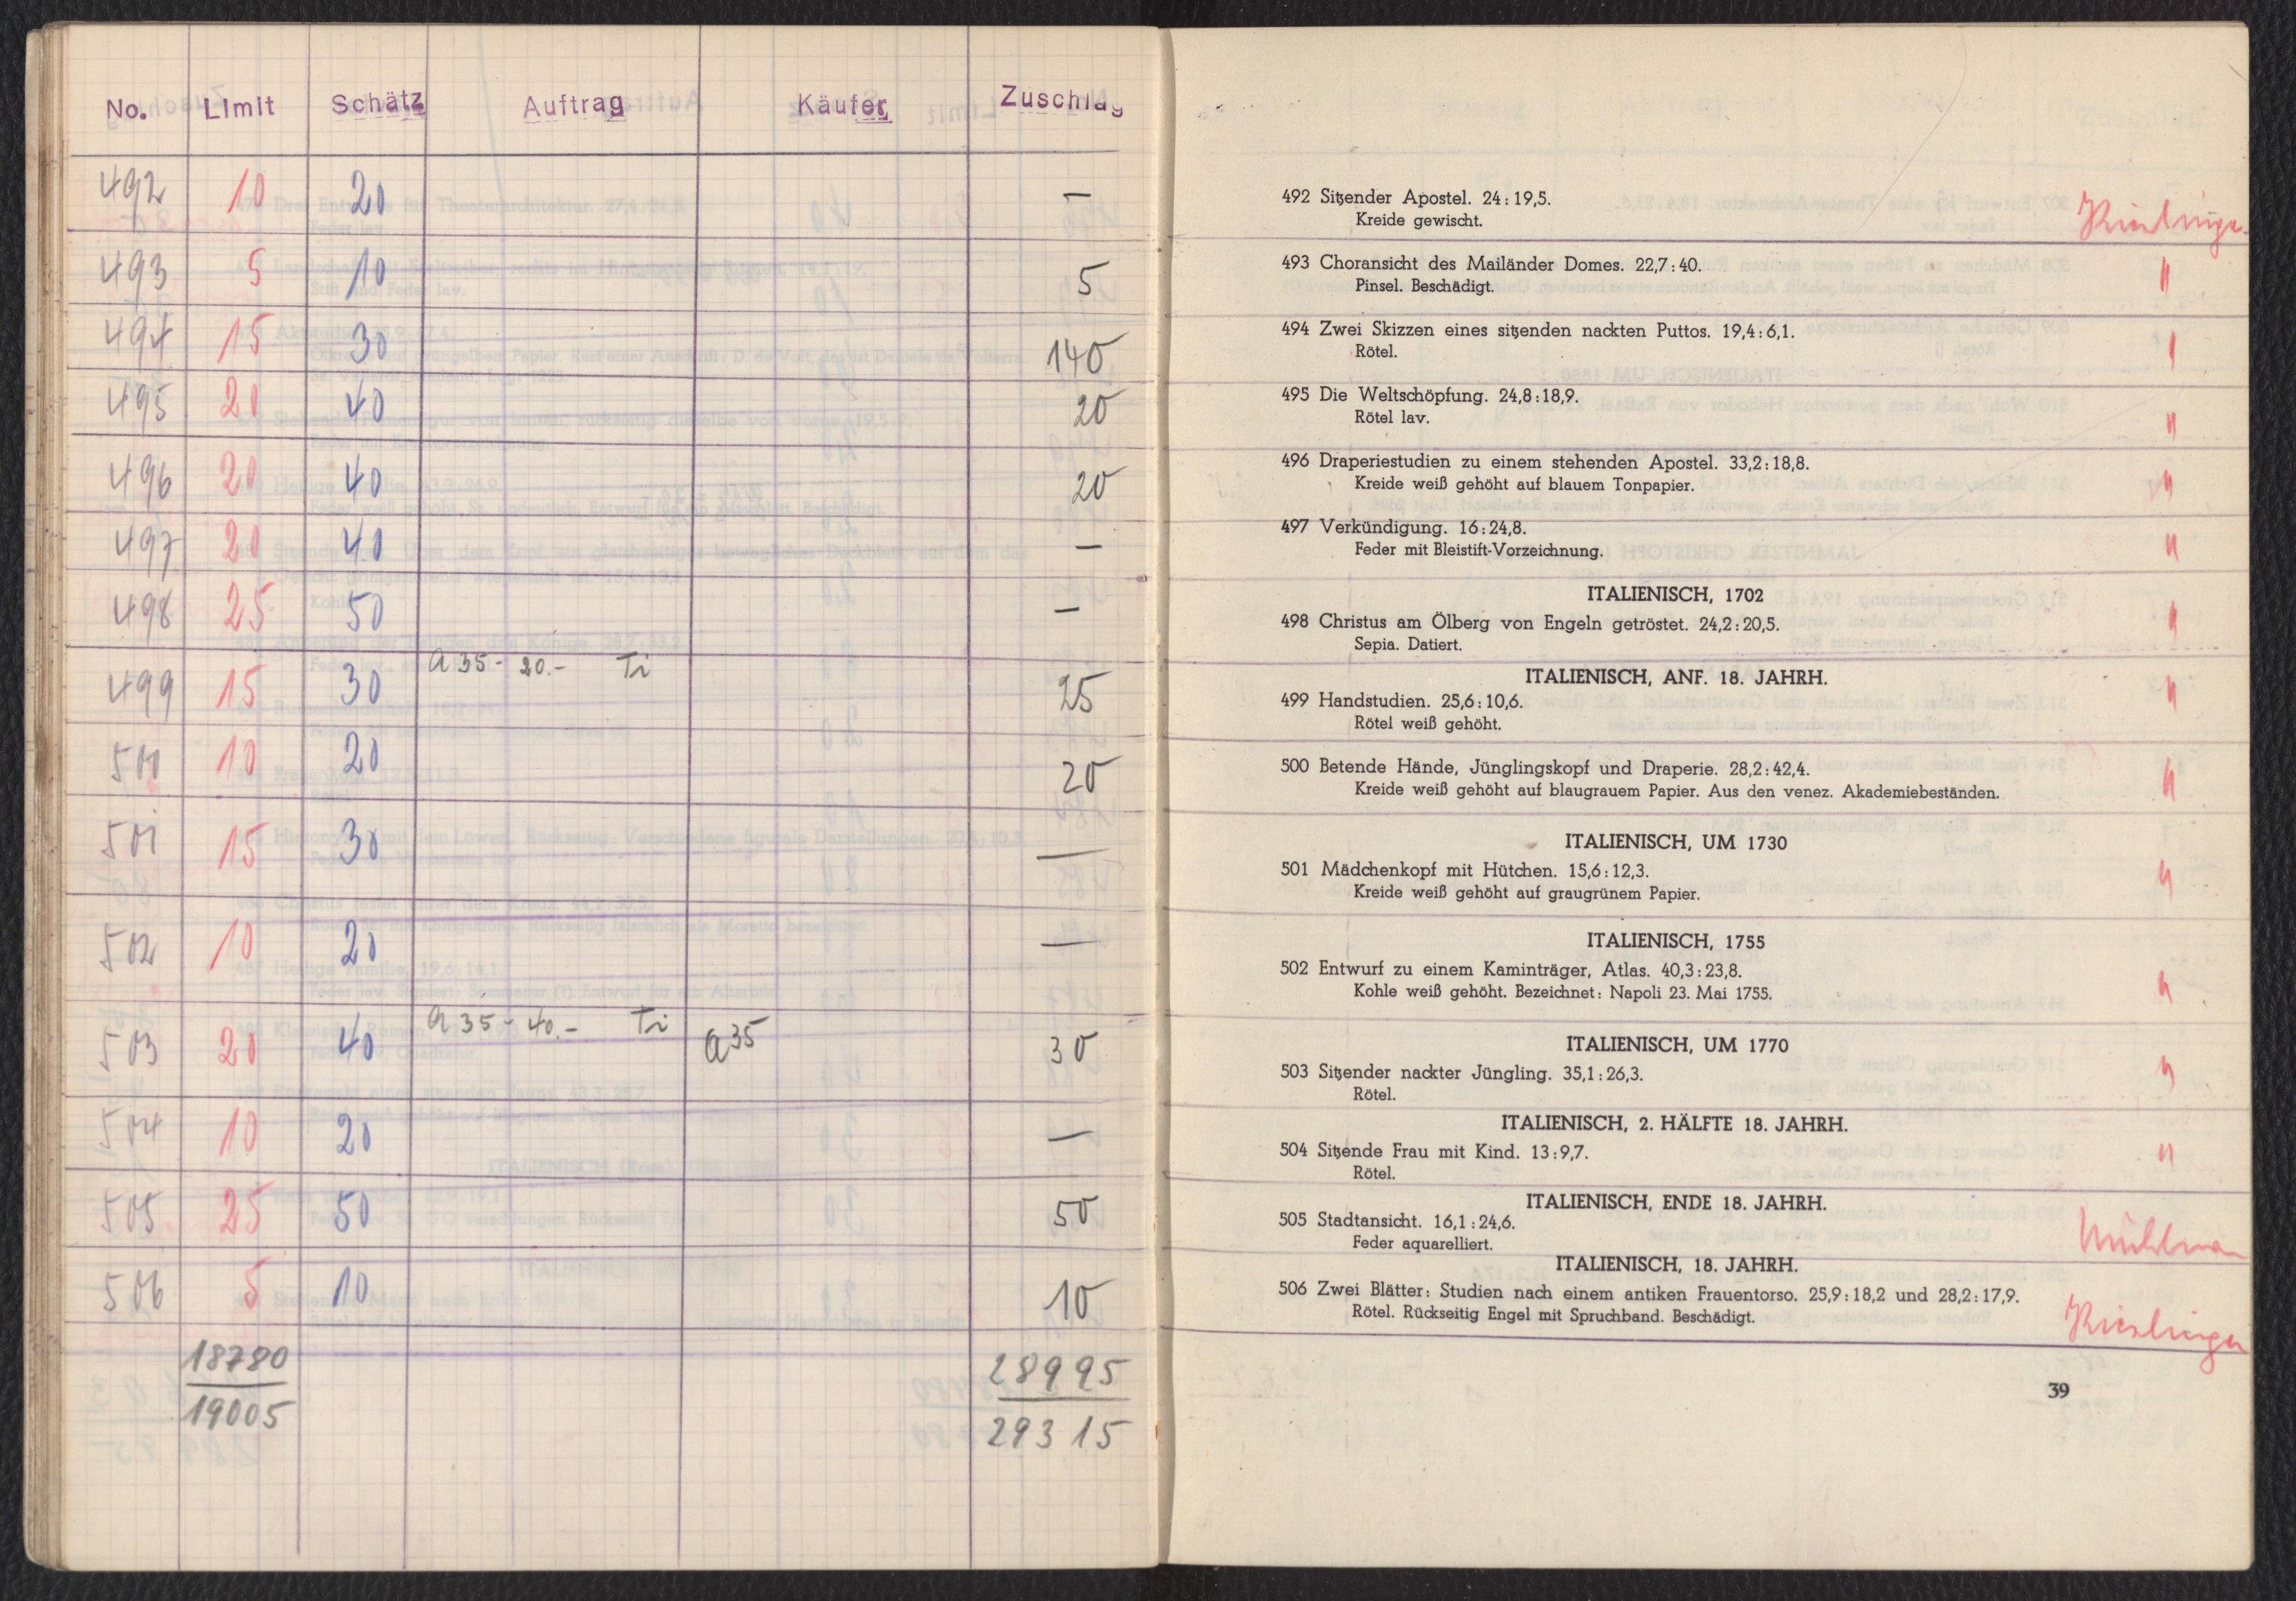 No. Limit Schätz Auftrag Käufer Zuschlag
492 10 20 –
493 5 10 5
494 15 30 140
495 20 40 20
496 20 40 20
497 20 40 –
498 25 50 –
499 15 30 a 35 - 20.- Ti 25
500 10 20 20
501 15 30 —
502 10 20 —
503 20 40 a 35 - 40.- Ti a 35 30
504 10 20 —
505 25 50 50
506 5 10 10
18780 28995
19005 29315
492 Sitzender Apostel. 24 : 19,5.
Kreide gewischt.
493 Choransicht des Mailänder Domes. 22,7 : 40.
Pinsel. Beschädigt. "
494 Zwei Skizzen eines sitzenden nackten Puttos. 19,4 : 6,1.
Rötel. "
495 Die Weltschöpfung. 24,8 : 18,9.
Rötel lav. "
496 Draperiestudien zu einem stehenden Apostel. 33,2 : 18,8.
Kreide weiß gehöht auf blauem Tonpapier. "
497 Verkündigung. 16 : 24,8.
Feder mit Bleistift-Vorzeichnung. "
ITALIENISCH, 1702
498 Christus am Ölberg von Engeln getröstet. 24,2 : 20,5. "
Sepia. Datiert.
ITALIENISCH, ANF. 18. JAHRH.
499 Handstudien. 25,6 : 10,6. "
Rötel weiß gehöht.
500 Betende Hände, Jünglingskopf und Draperie. 28,2 : 42,4. "
Kreide weiß gehöht auf blaugrauem Papier. Aus den venez. Akademiebeständen.
ITALIENISCH, UM 1730
501 Mädchenkopf mit Hütchen. 15,6 : 12,3. "
Kreide weiß gehöht auf graugrünem Papier.
ITALIENISCH, 1755
502 Entwurf zu einem Kaminträger, Atlas. 40,3 : 23,8. "
Kohle weiß gehöht. Bezeichnet: Napoli 23. Mai 1755.
ITALIENISCH, UM 1770
503 Sitzender nackter Jüngling. 35,1 : 26,3. "
Rötel.
ITALIENISCH, 2. HÄLFTE 18. JAHRH.
504 Sitzende Frau mit Kind. 13 : 9,7. "
Rötel.
ITALIENISCH, ENDE 18. JAHRH.
505 Stadtansicht. 16,1 : 24,6.
Feder aquarelliert.
ITALIENISCH, 18. JAHRH.
506 Zwei Blätter: Studien nach einem antiken Frauentorso. 25,9 : 18,2 und 28,2 : 17,9.
Rötel. Rückseitig Engel mit Spruchband. Beschädigt. Kieslinger
39